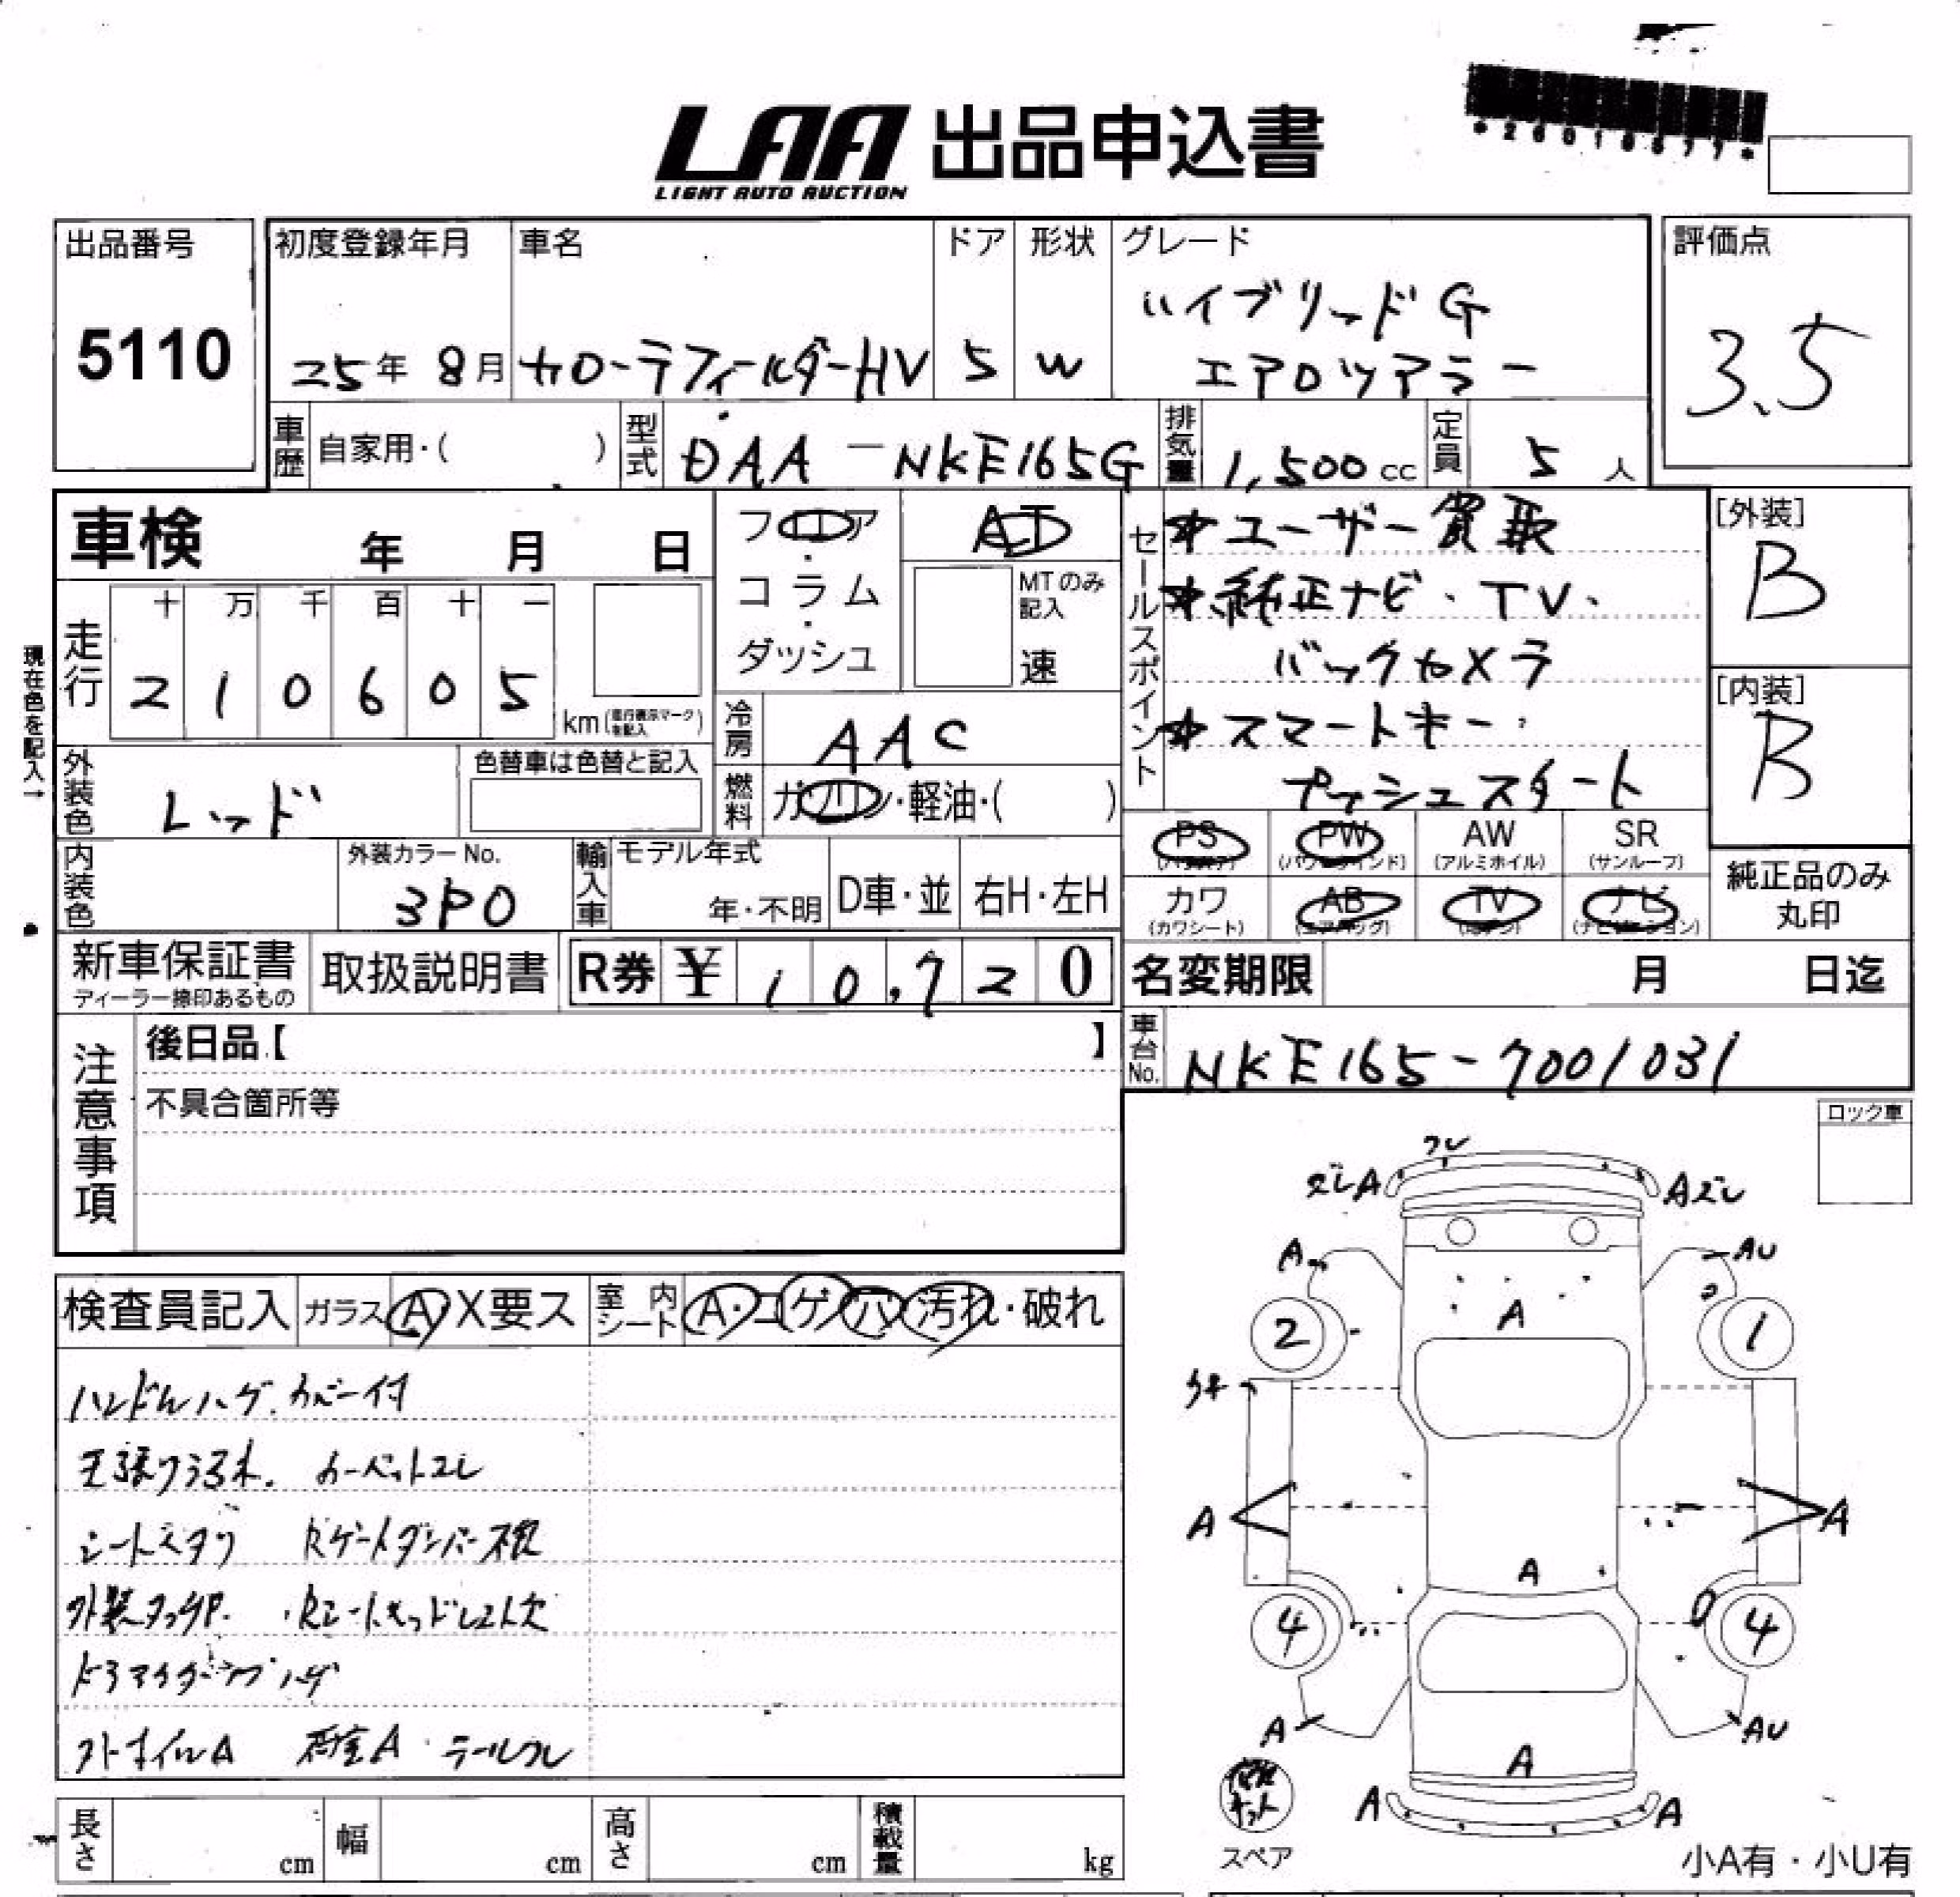 LAA 出品申込書
LIGHT AUTO AUCTION
出品番号 初度登録年月 車名 ドア 形状 グレード 評価点
5110
25年 8月 カローラフィールダーHV 5 W ハイブリッド G
エアロツアラー
3.5
車歴 自家用・( ) 型式 DAA-NKE165G 排気量 1,500cc 定員 5人
車検 年 月 日
フロア・コラム・ダッシュ
AT
MTのみ記入
速
セールスポイント
*ユーザー買取
*純正ナビ・TV・
バックカメラ
*スマートキー・
プッシュスタート
[外装]
B
[内装]
B
現在色を記入→
走行 十 万 千 百 十 一
2 1 0 6 0 5 km(走行表示マークを記入)
冷房 AAC
外装色 レッド 色替車は色替と記入
燃料 ガソリン・軽油・( )
内装色 外装カラーNo. 3P0
輸入車 モデル年式 年・不明 D車・並 右H・左H
PS PW AW SR
(パワステ) (パワーウインド) (アルミホイル) (サンルーフ)
カワ AB TV ナビ
(カワシート) (エアバッグ) (ナビゲーション)
純正品のみ
丸印
新車保証書 ディーラー捺印あるもの 取扱説明書 R券 ¥ 10,720
名変期限 月 日迄
車台No. NKE165-7001031
注意事項
後日品【 】
不具合箇所等
ロック車
検査員記入 ガラス A・X要ス 室内シート A・コゲ・穴・汚れ・破れ
ハンドルハゲ.カバー付
天張りうろ木. カーペットコレ
シートスタリ Rゲートダンパー不良
外装タッチP. Rシートヘッドレスト欠
ドラアウターノブハゲ
アトホイルA 荷室A・テールフレ
フレ
ズレA Aズレ
A AU
A
2 1
A A
A
4 4
A AU
A
A A
修理キット
スペア
小A有・小U有
長さ cm 幅 cm 高さ cm 積載量 kg